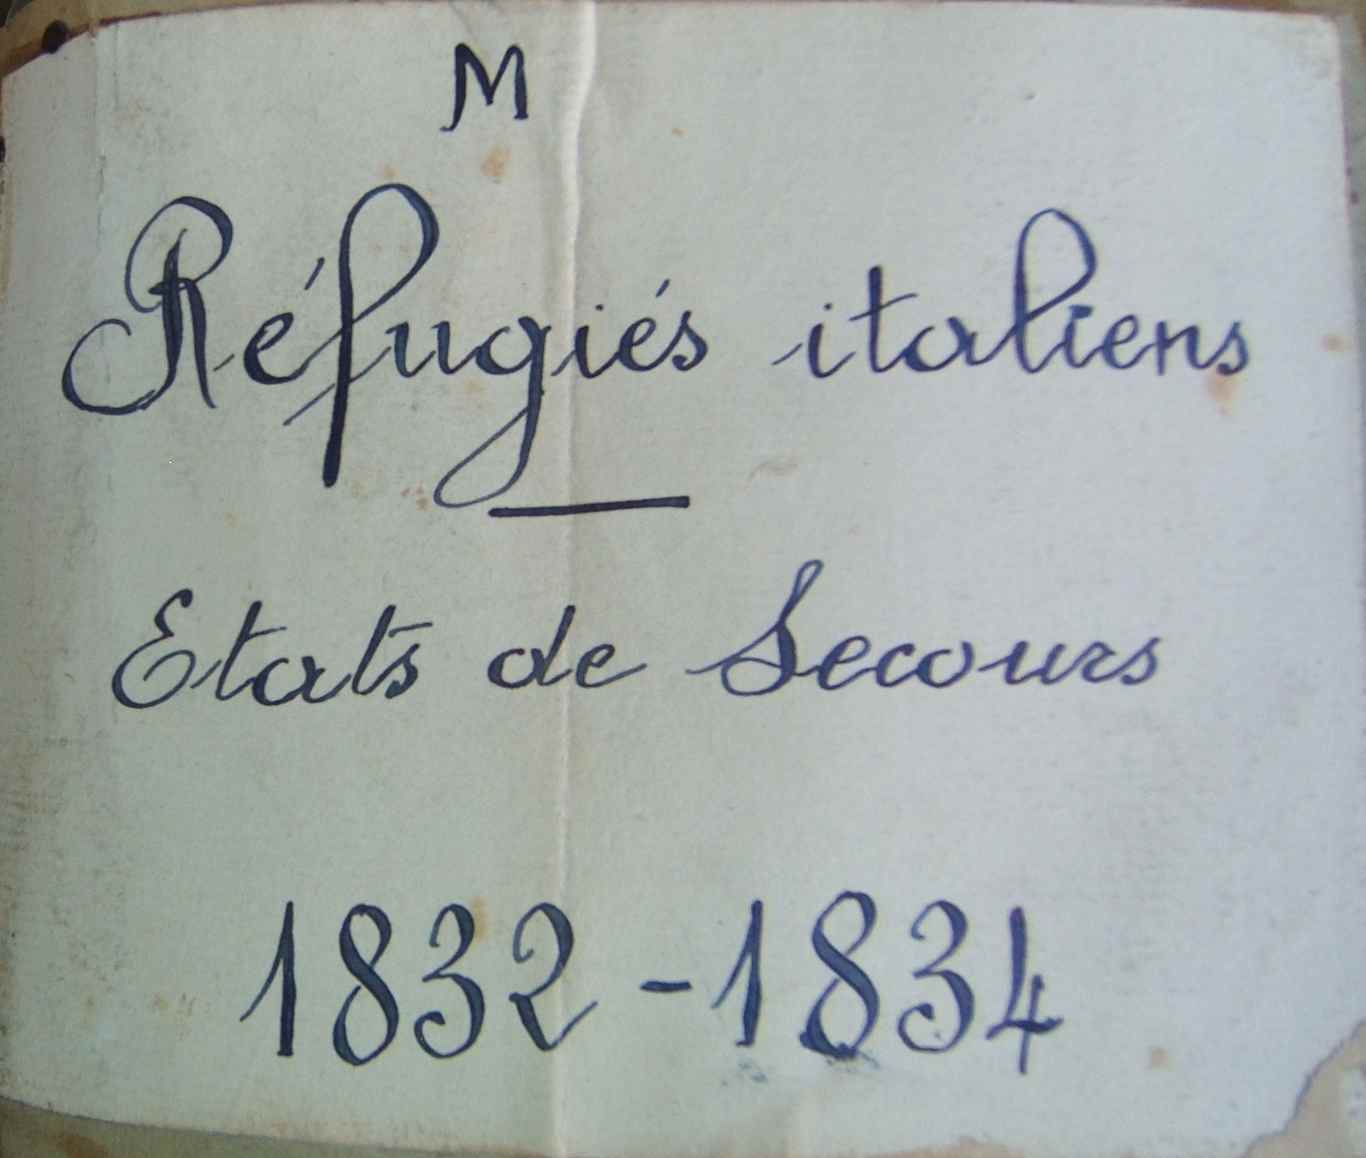 M
Réfugiés italiens
Etats de Secours
1832-1834